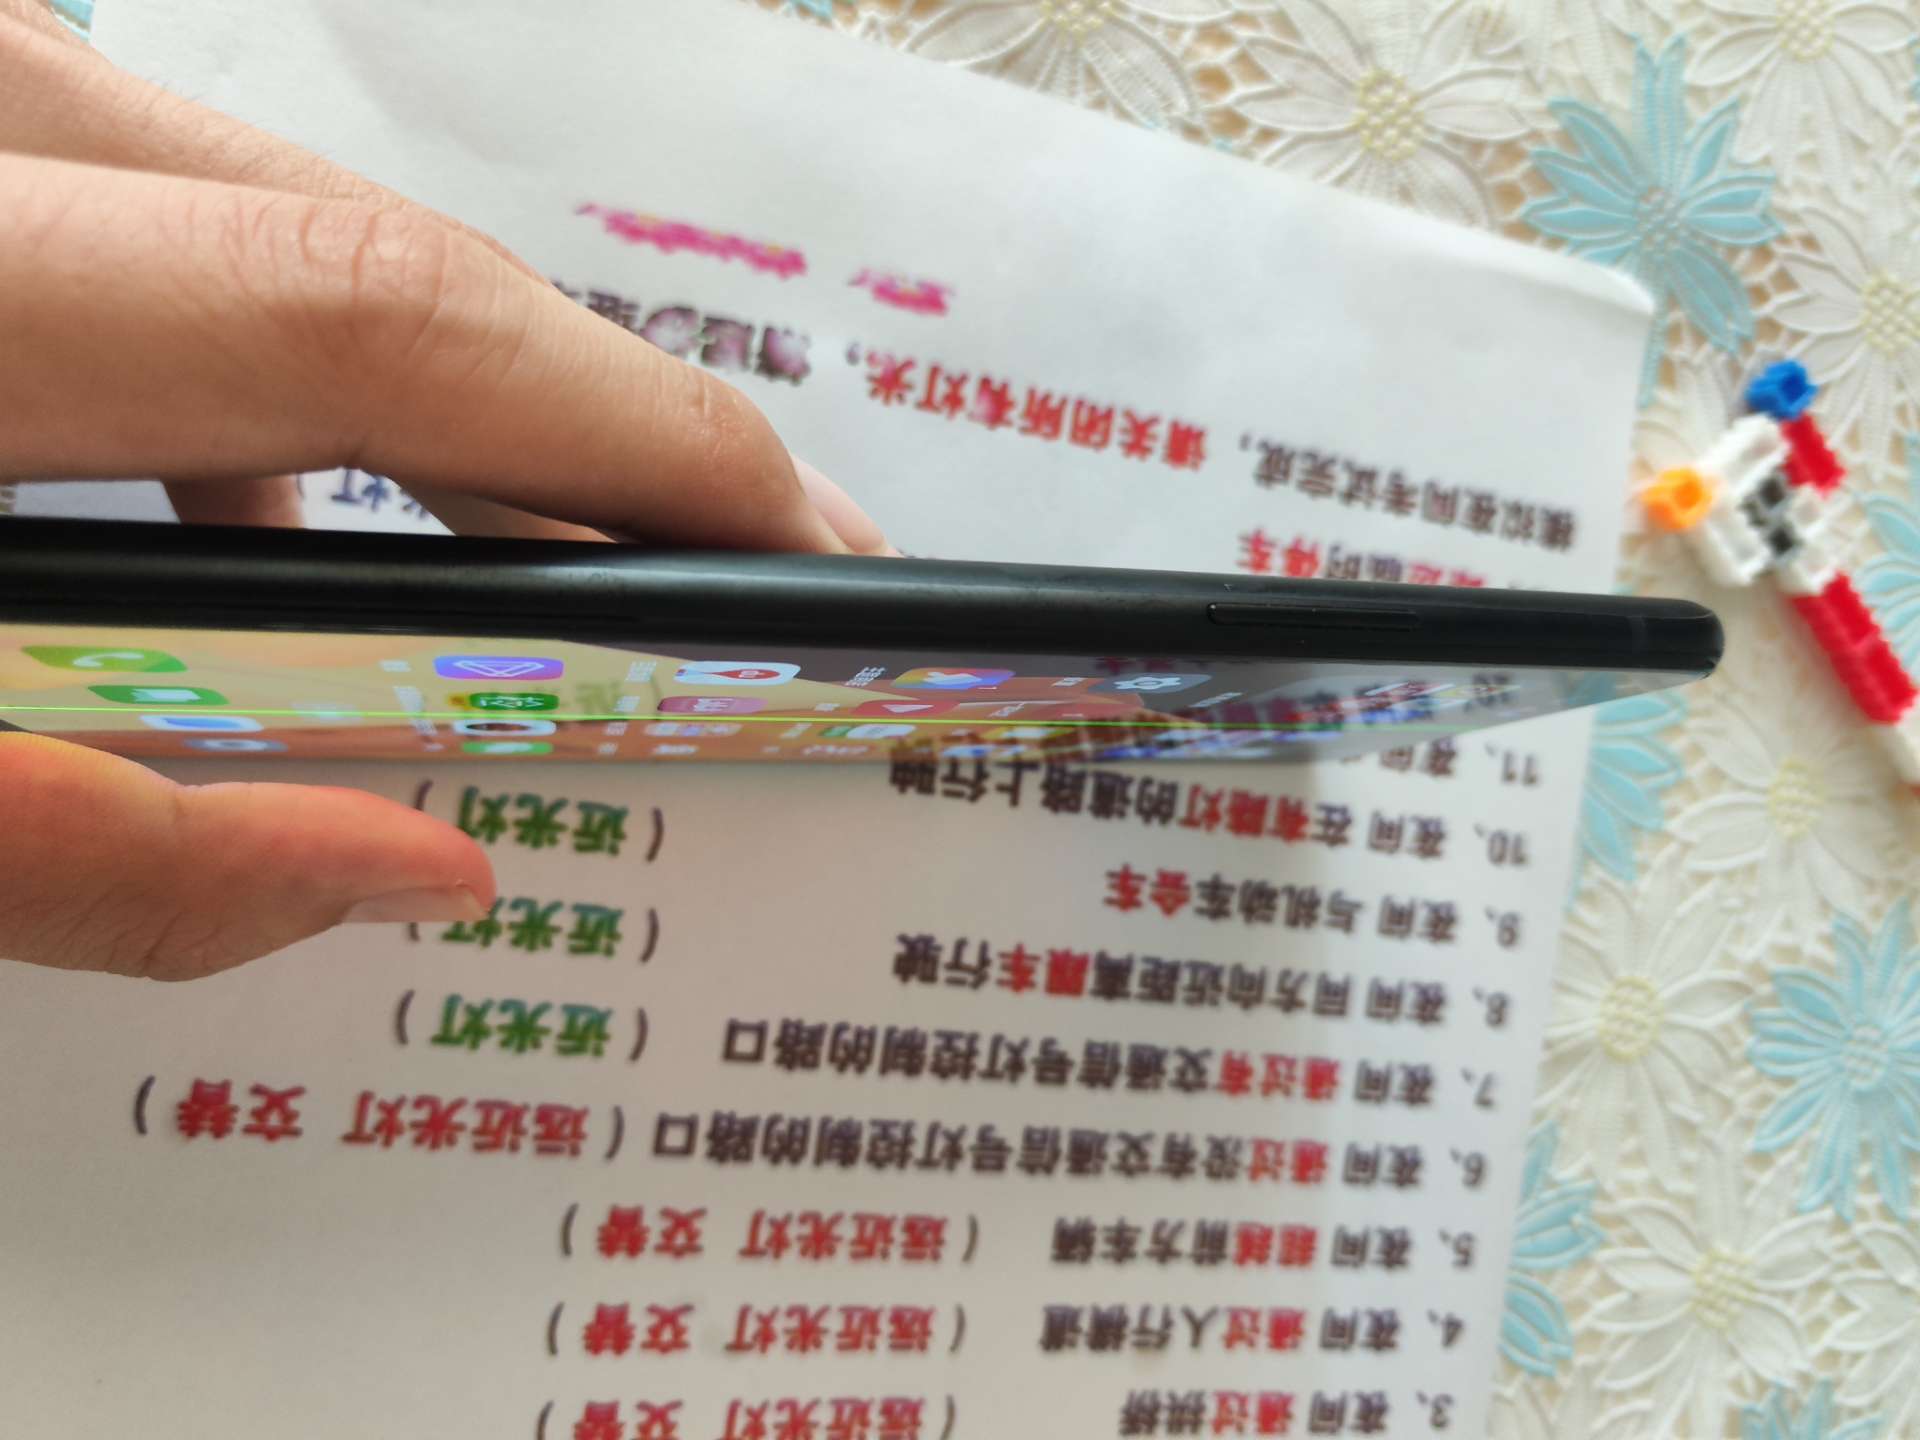 3、夜间 通过拱桥 (远近光灯 交替
4、夜间 通过人行横道 (远近光灯 交替)
5、夜间 超越前方车辆 (远近光灯 交替)
6、夜间 通过没有交通信号灯控制的路口 (远近光灯 交替)
7、夜间 通过有交通信号灯控制的路口 (近光灯)
8、夜间 同方向近距离跟车行驶 (近光灯)
9、夜间 与机动车会车 (近光灯)
10、夜间 在有路灯的道路上行驶
11、夜间
路边临时停车
光灯
模拟夜间考试完成，请关闭所有灯光，请起步